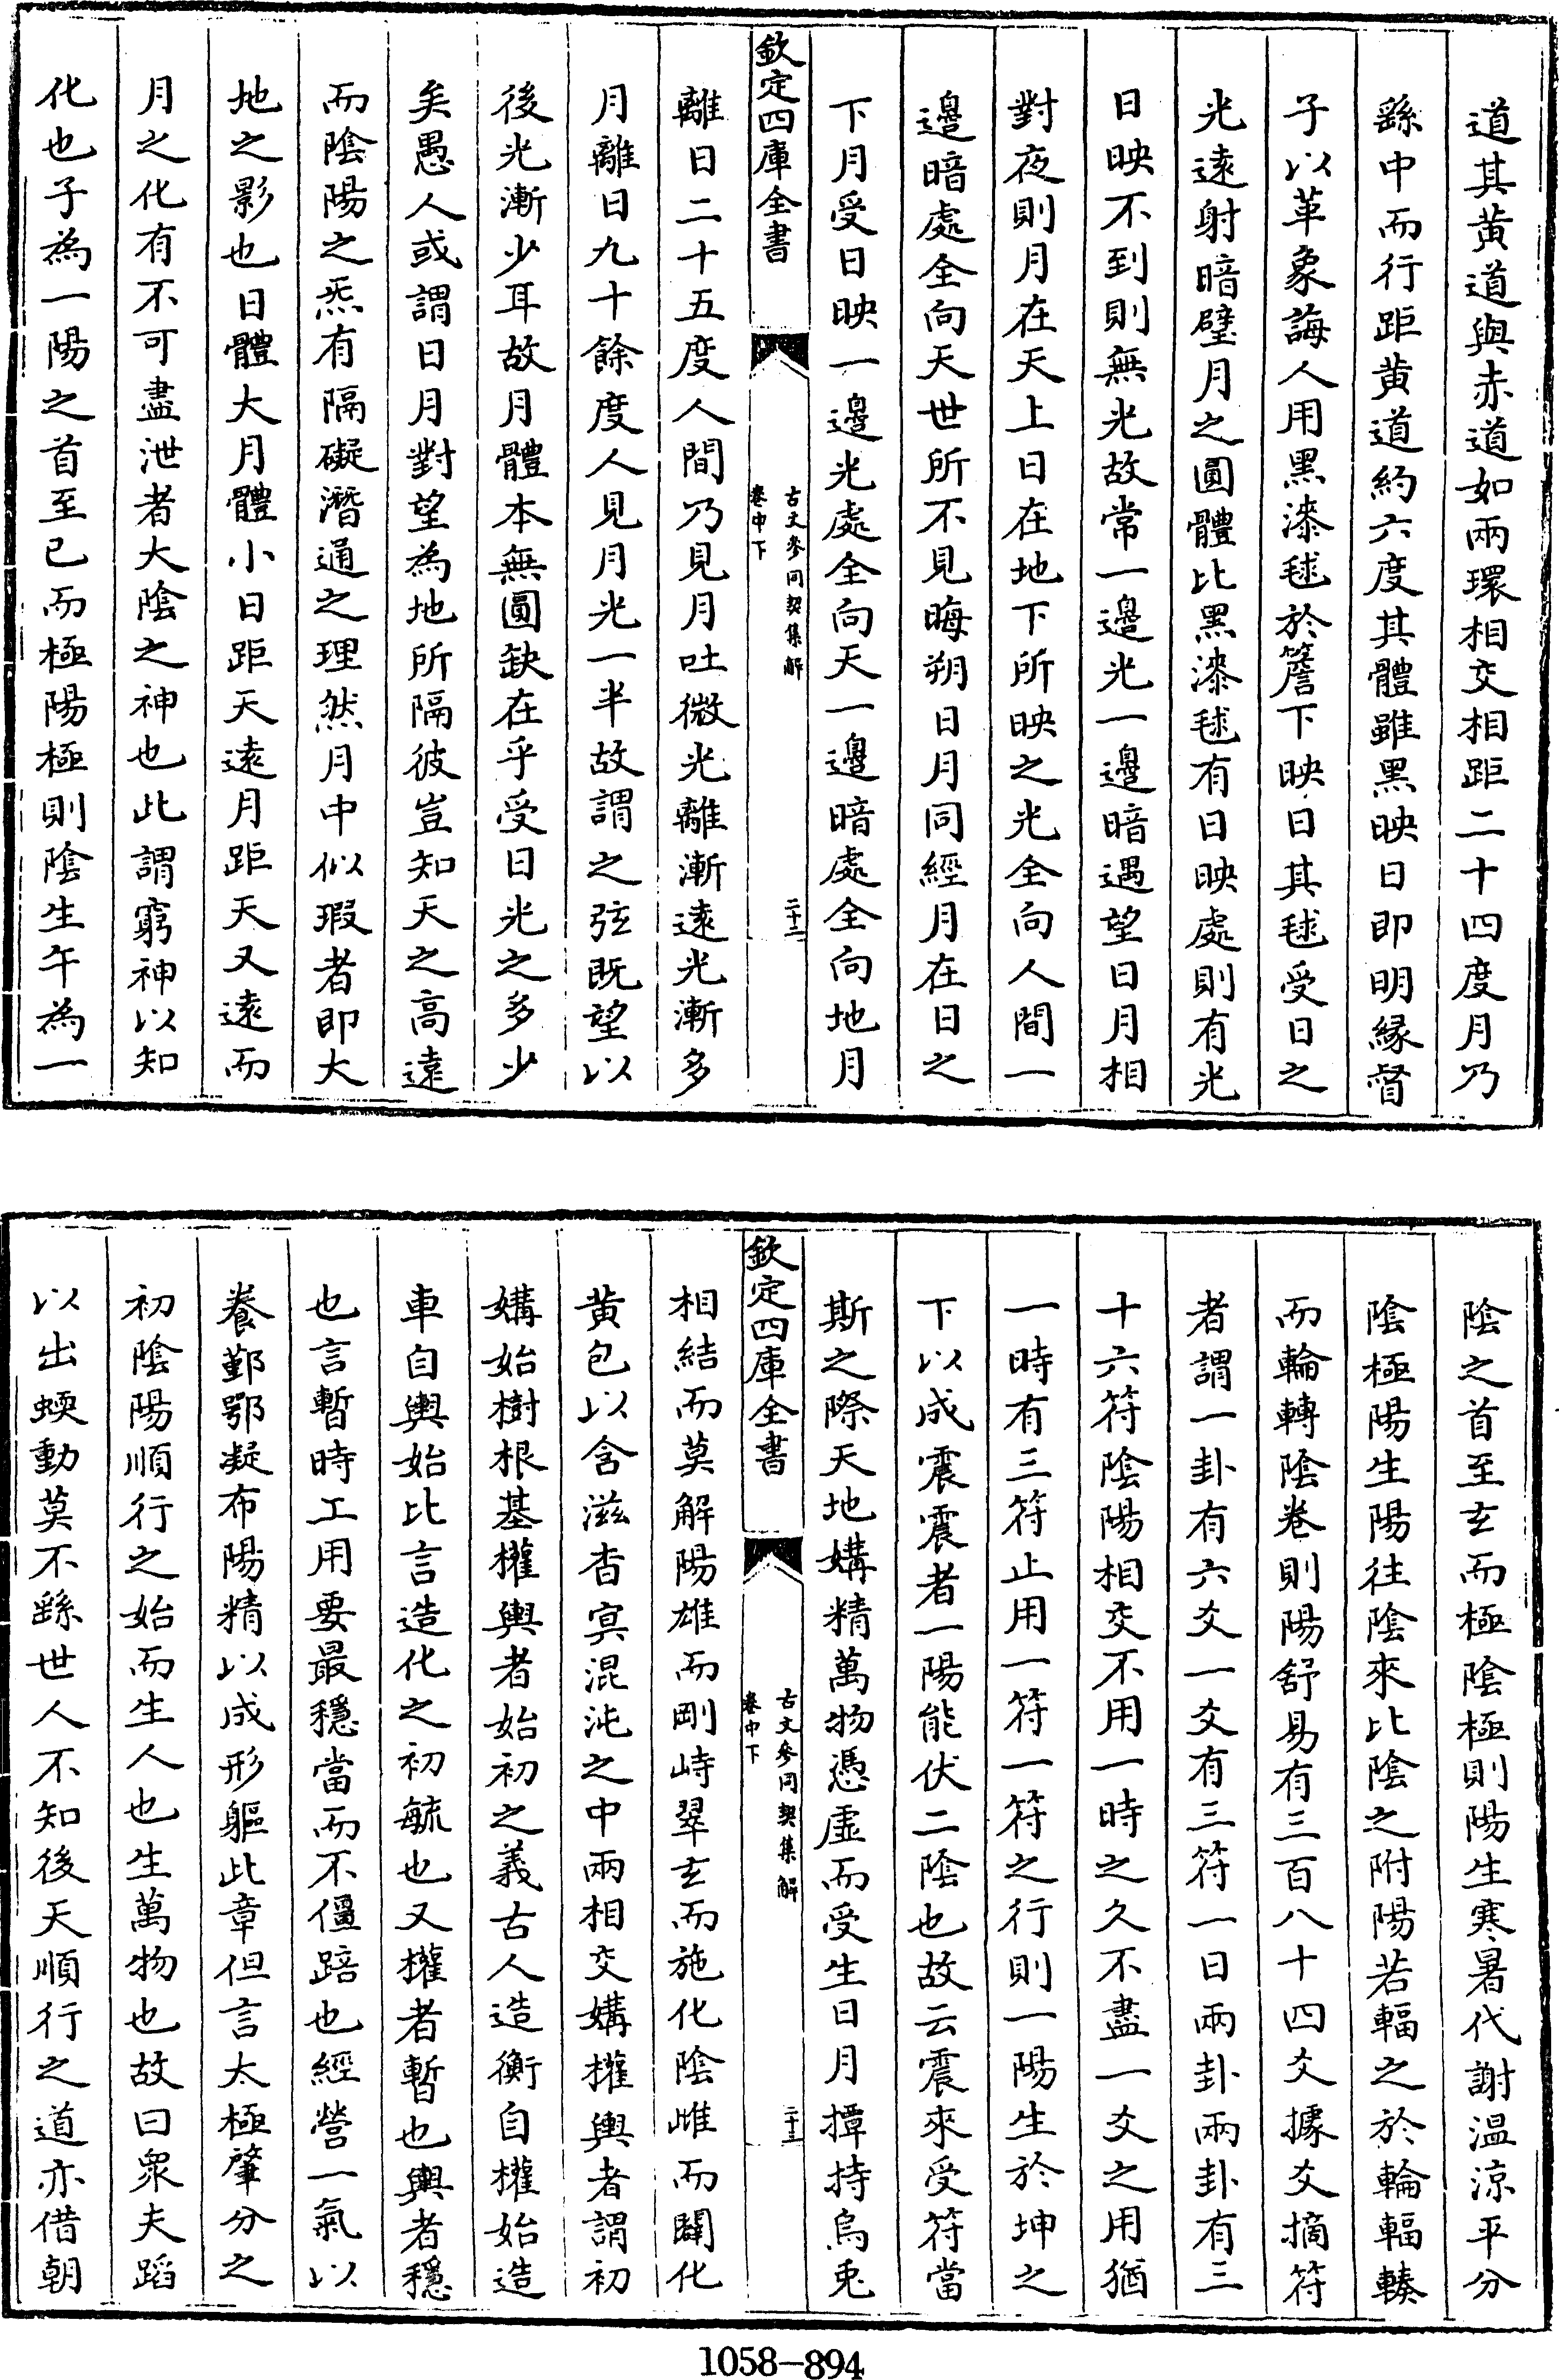 道其黄道與赤道如兩環相交相距二十四度月乃
繇中而行距黄道約六度其體雖黑映日即明縁督
子以革象誨人用黒漆毬於簷下映日其毬受日之
光遠射暗壁月之圓體比黑漆毬有日映處則有光
日映不到則無光故常一邉光一邉暗遇望日月相
對夜則月在天上日在地下所映之光全向人間一
邉暗處全向天世所不見晦朔日月同經月在日之
下月受日映一邉光處全向天一邉暗處全向地月
欽定四庫全書
古文參同契集解
卷中下
二十二
離日二十五度人間乃見月吐微光離漸遠光漸多
月離日九十餘度人見月光一半故謂之弦既望以
後光漸少耳故月體本無圓缺在乎受日光之多少
矣愚人或謂日月對望為地所隔彼豈知天之髙遠
而陰陽之炁有隔礙潛通之理然月中似瑕者即大
地之影也日體大月體小日距天遠月距天又遠而
月之化有不可盡泄者大陰之神也此謂窮神以知
化也子為一陽之首至已而極陽極則陰生午為一
陰之首至玄而極陰極則陽生寒暑代謝温涼平分
陰極陽生陽往陰來比陰之附陽若輻之於輪輻輳
而輪轉陰卷則陽舒易有三百八十四爻據爻摘符
者謂一卦有六爻一爻有三符一日兩卦兩卦有三
十六符陰陽相交不用一時之久不盡一爻之用猶
一時有三符止用一符一符之行則一陽生於坤之
下以成震震者一陽能伏二陰也故云震來受符當
斯之際天地媾精萬物憑虛而受生日月撢持烏兎
欽定四庫全書
古文參同契集解
卷中下
二十三
相結而莫解陽雄而剛峙翠玄而施化陰雌而闢化
黄包以含滋杳冥混沌之中兩相交媾權輿者謂初
媾始樹根基權輿者始初之義古人造衡自權始造
車自輿始比言造化之初毓也又權者暫也輿者穩
也言暫時工用要最穩當而不僵踣也經營一氣以
養鄞鄂凝布陽精以成形軀此章但言太極肇分之
初陰陽順行之始而生人也生萬物也故曰衆夫蹈
以出蝡動莫不繇世人不知後天順行之道亦借朝
1058-894